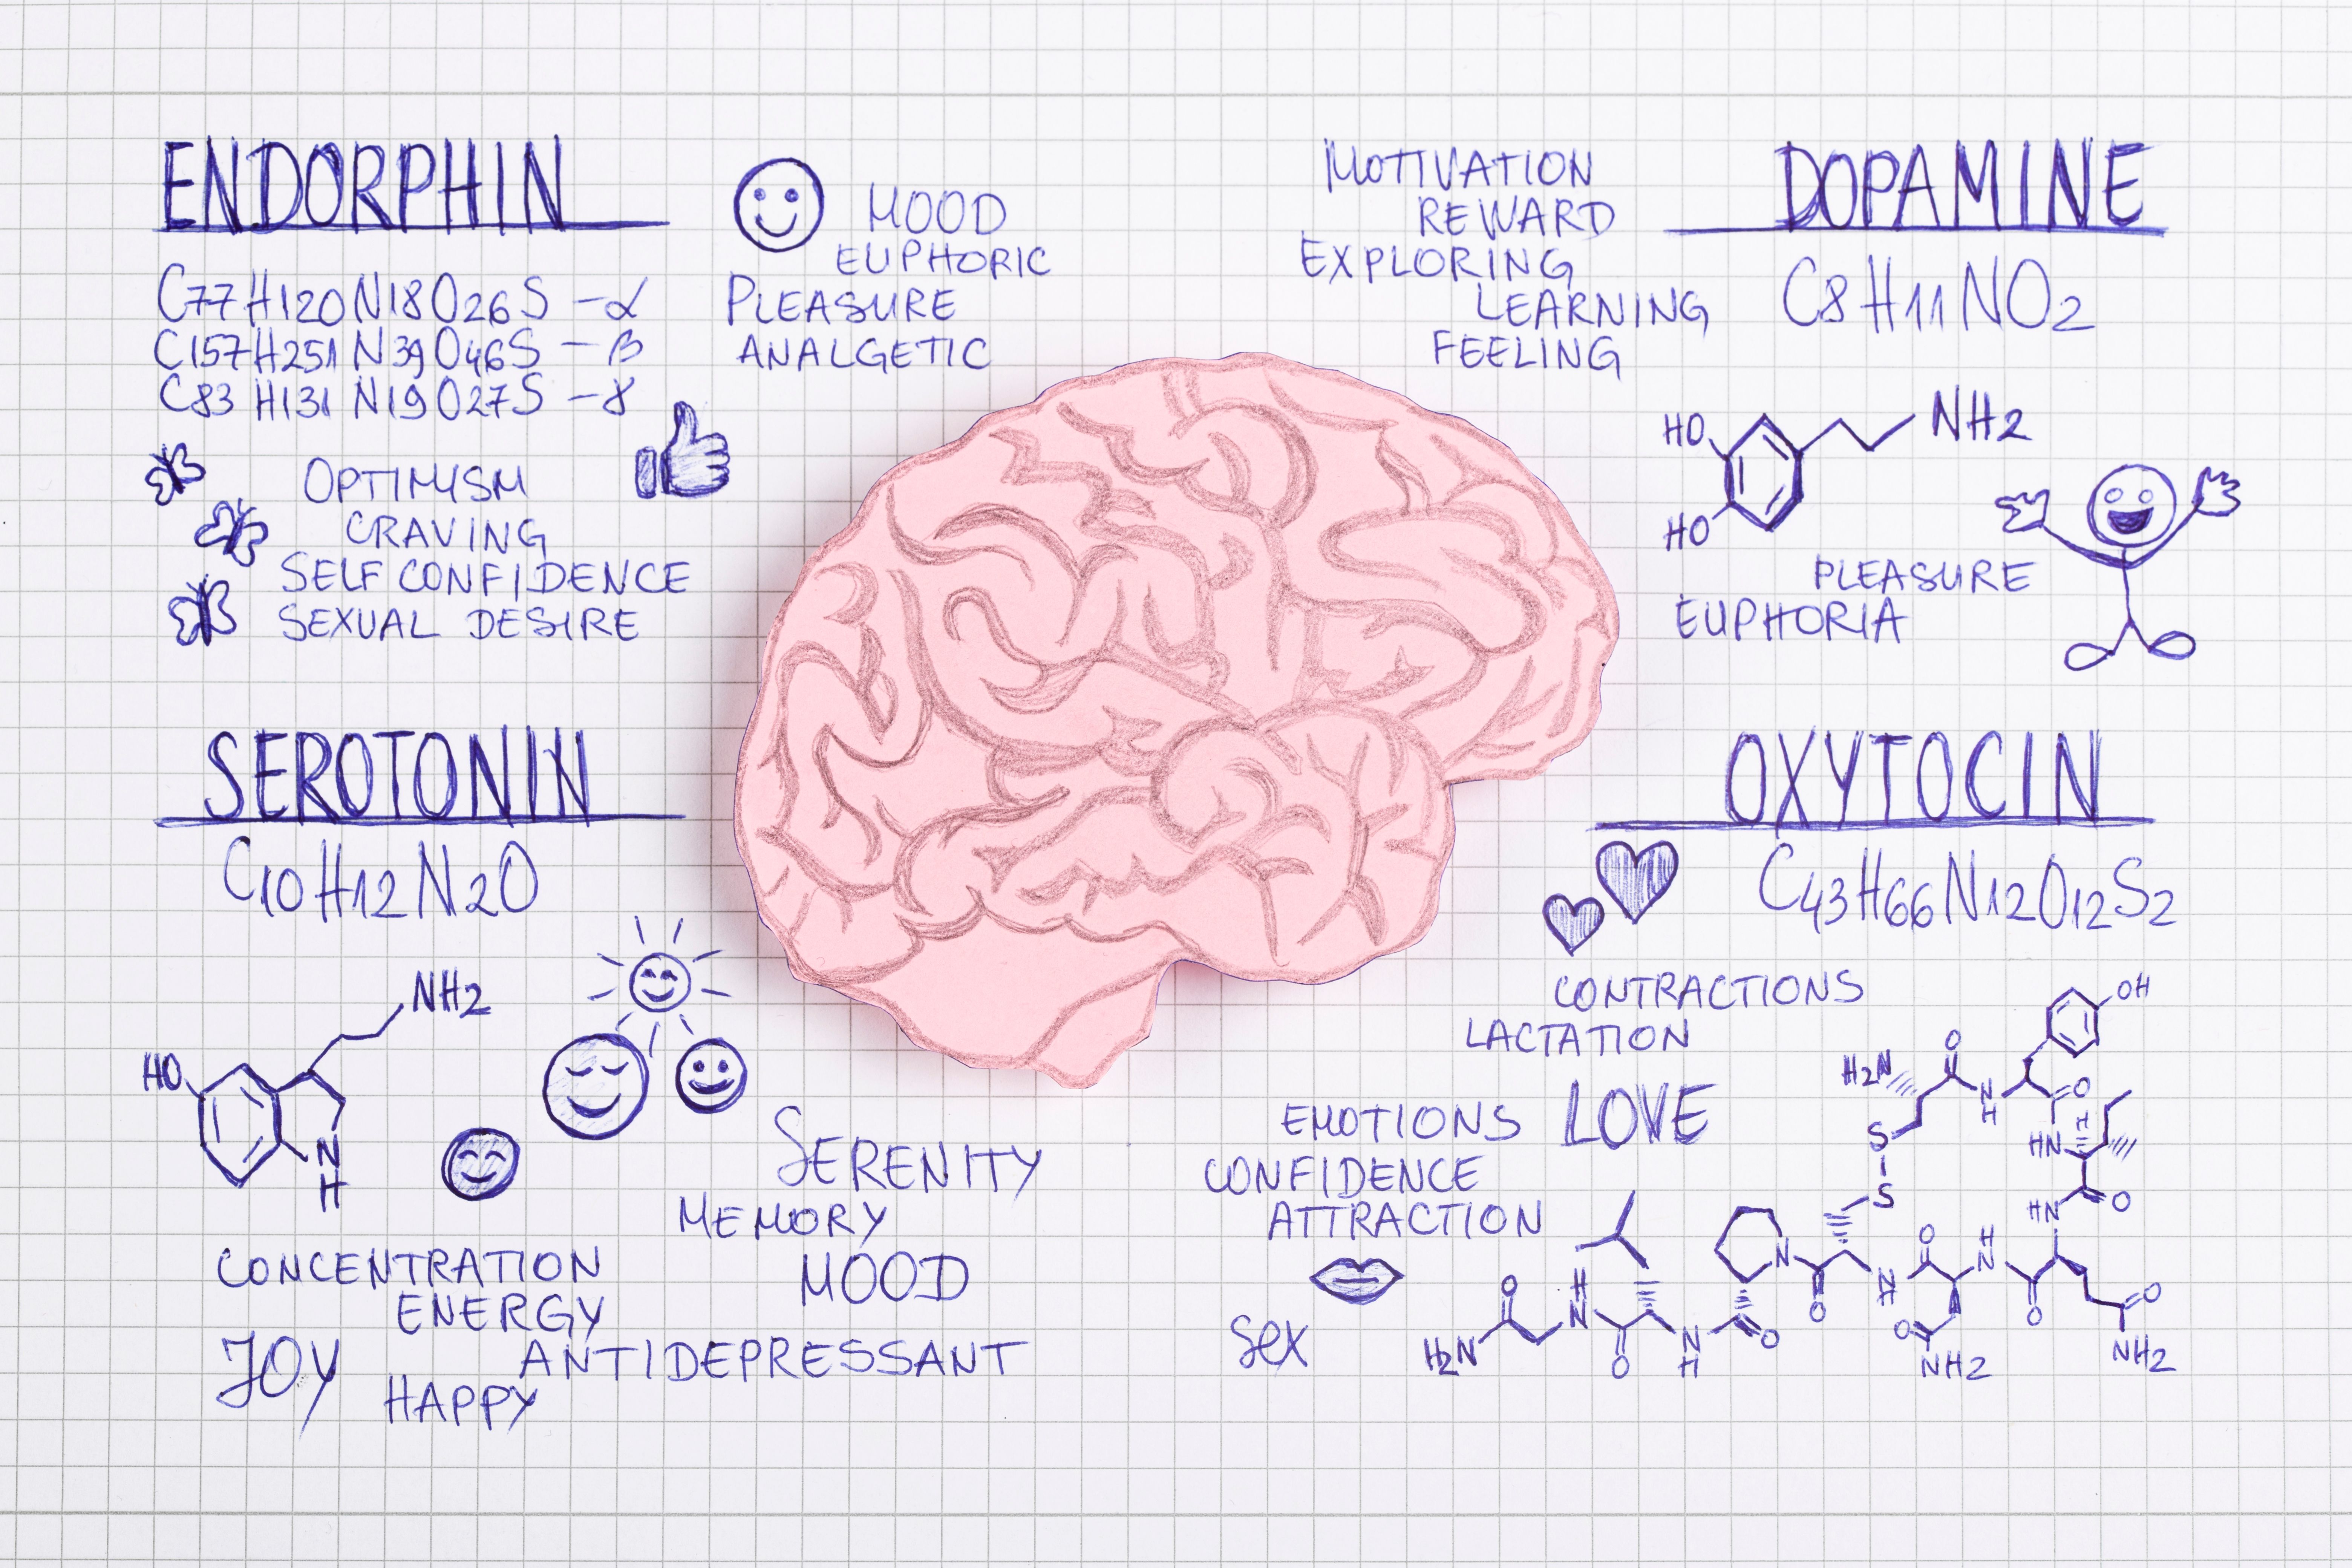 ENDORPHIN
C77H120N18O26S -α
C157H251N39O46S - β
C83H131N19O27S -γ
MOOD
EUPHORIC
PLEASURE
ANALGETIC
OPTIMISM
CRAVING
SELF CONFIDENCE
SEXUAL DESIRE
MOTIVATION
REWARD
EXPLORING
LEARNING
FEELING
DOPAMINE
C8H11NO2
HO
NH2
HO
PLEASURE
EUPHORIA
SEROTONIN
C10H12N2O
NH2
HO
N
H
SERENITY
MEMORY
MOOD
CONCENTRATION
ENERGY
ANTIDEPRESSANT
JOY
HAPPY
OXYTOCIN
C43H66N12O12S2
CONTRACTIONS
LACTATION
EMOTIONS LOVE
CONFIDENCE
ATTRACTION
SEX
OH
H2N
O
N
H
O
S
HN
H
S
O
HN
N
O
H
N
H
N
O
N
H
O
O
O
H2N
O
N
H
O
O
NH2
NH2